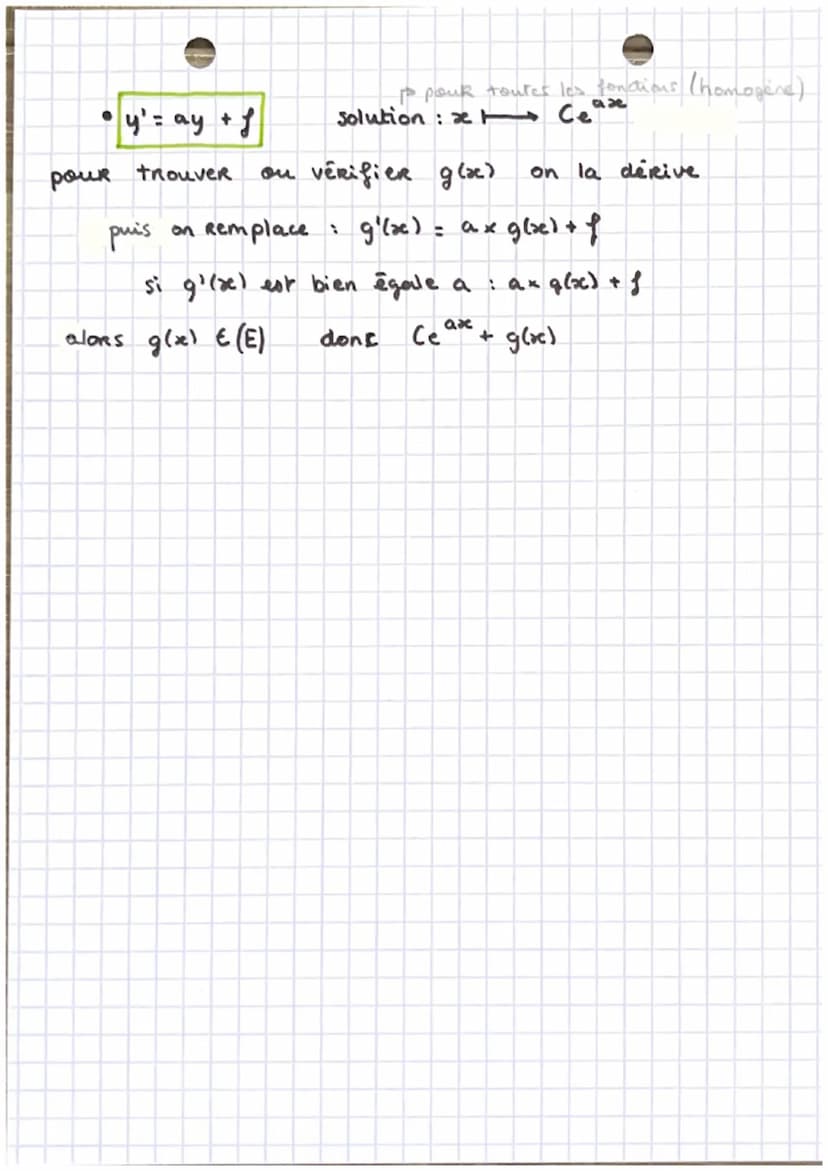 → pour toutes les fonctions (homogène)
• y' = ay + f solution : x ⟼ Ce^{ax}
pour trouver ou vérifier g(x) on la dérive
puis on remplace : g'(x) = a × g(x) + f
si g'(x) est bien égale a : a × g(x) + f
alors g(x) ∈ (E) donc Ce^{ax} + g(x)